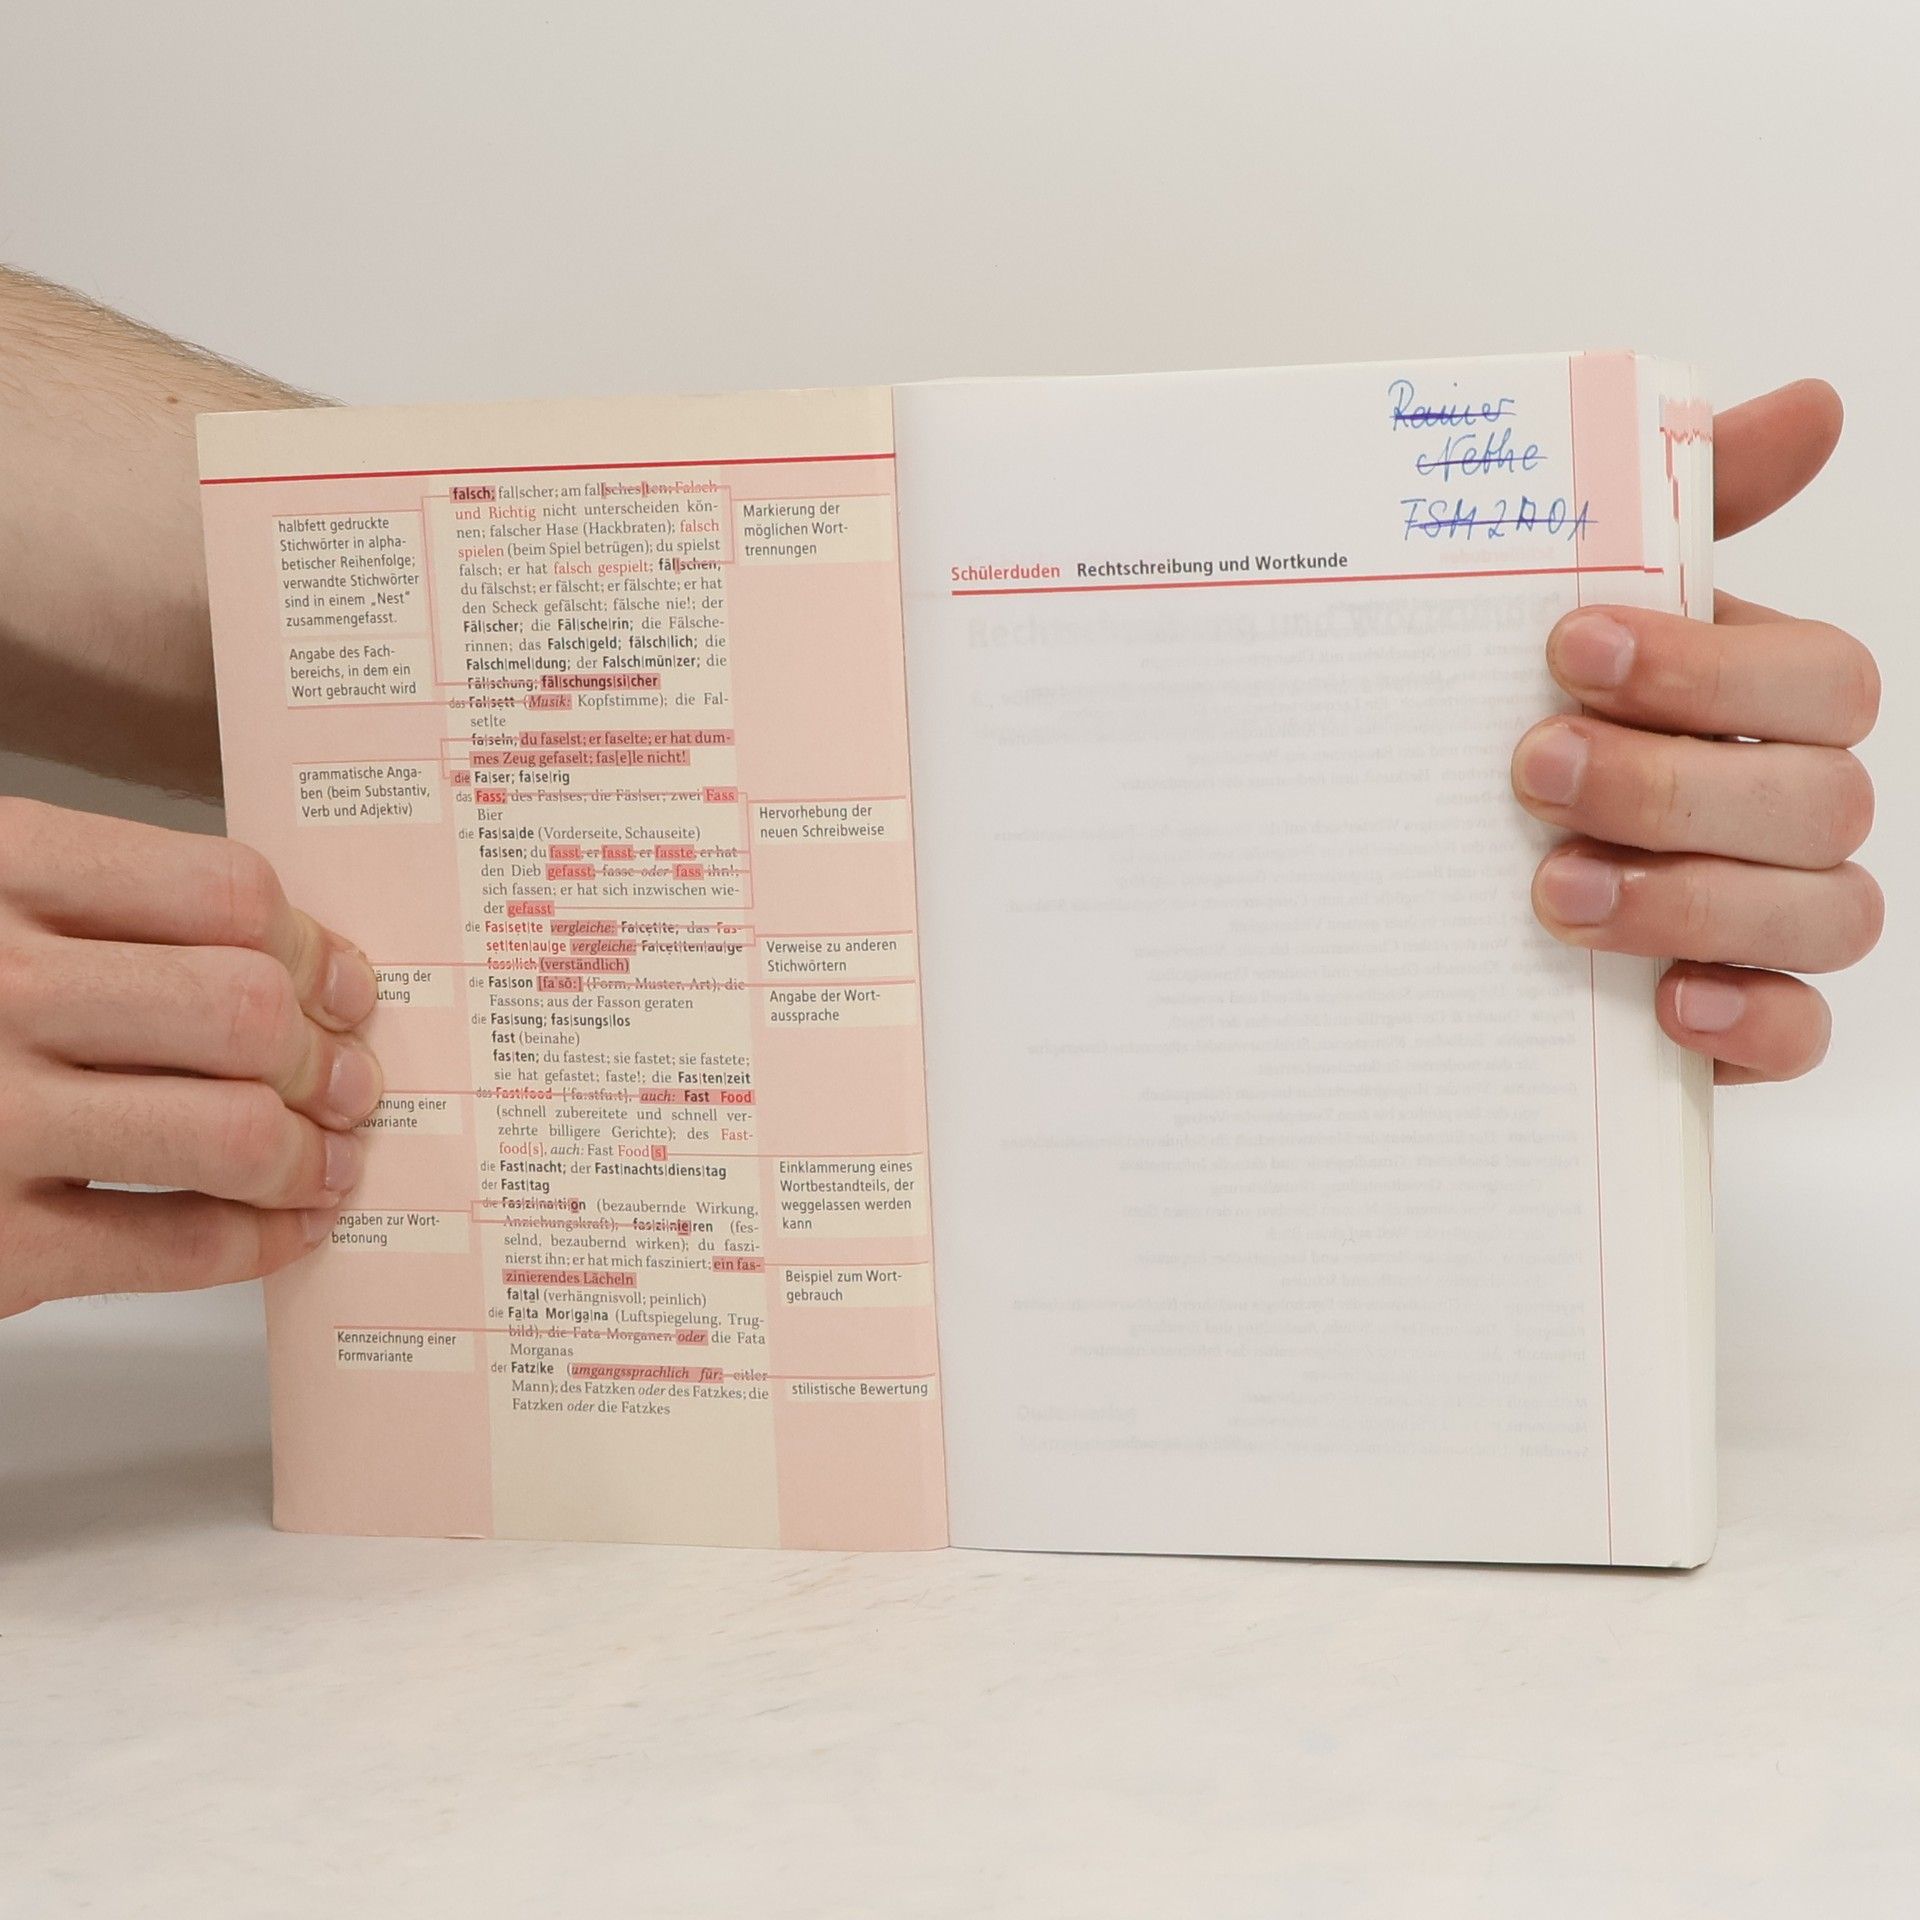 halbfett gedruckte
Stichwörter in alpha-
betischer Reihenfolge;
verwandte Stichwörter
sind in einem „Nest"
zusammengefasst.
Angabe des Fach-
bereichs, in dem ein
Wort gebraucht wird
grammatische Anga-
ben (beim Substantiv,
Verb und Adjektiv)
ärung der
utung
nnung einer
variante
ngaben zur Wort-
betonung
Kennzeichnung einer
Formvariante
falsch; fal|scher; am fal|sches|ten; Falsch
und Richtig nicht unterscheiden kön-
nen; falscher Hase (Hackbraten); falsch
spielen (beim Spiel betrügen); du spielst
falsch; er hat falsch gespielt; fäl|schen;
du fälschst; er fälscht; er fälschte; er hat
den Scheck gefälscht; fälsche nie!; der
Fäl|scher; die Fäl|sche|rin; die Fälsche-
rinnen; das Falsch|geld; fälsch|lich; die
Falsch|mel|dung; der Falsch|mün|zer; die
Fäl|schung; fäl|schungs|si|cher
das Fal|sett (Musik: Kopfstimme); die Fal-
set|te
fa|seln; du faselst; er faselte; er hat dum-
mes Zeug gefaselt; fas[e]le nicht!
die Fa|ser; fa|se|rig
das Fass; des Fas|ses; die Fäs|ser; zwei Fass
Bier
die Fas|sa|de (Vorderseite, Schauseite)
fas|sen; du fasst; er fasst; er fasste; er hat
den Dieb gefasst; fasse oder fass ihn!;
sich fassen; er hat sich inzwischen wie-
der gefasst
die Fas|set|te vergleiche: Fa|cet|te; das Fas-
set|ten|au|ge vergleiche: Fa|cet|ten|au|ge
fass|lich (verständlich)
die Fas|son [fa'sõ:] (Form, Muster, Art); die
Fassons; aus der Fasson geraten
die Fas|sung; fas|sungs|los
fast (beinahe)
fas|ten; du fastest; sie fastet; sie fastete;
sie hat gefastet; faste!; die Fas|ten|zeit
das Fast|food ['fa:stfu:t], auch: Fast Food
(schnell zubereitete und schnell ver-
zehrte billigere Gerichte); des Fast-
food[s], auch: Fast Food[s]
die Fast|nacht; der Fast|nachts|diens|tag
der Fast|tag
die Fas|zi|na|ti|on (bezaubernde Wirkung,
Anziehungskraft); fas|zi|nie|ren (fes-
selnd, bezaubernd wirken); du faszi-
nierst ihn; er hat mich fasziniert; ein fas-
zinierendes Lächeln
fa|tal (verhängnisvoll; peinlich)
die Fa|ta Mor|ga|na (Luftspiegelung, Trug-
bild); die Fata Morganen oder die Fata
Morganas
der Fatz|ke (umgangssprachlich für: eitler
Mann); des Fatzken oder des Fatzkes; die
Fatzken oder die Fatzkes
Markierung der
möglichen Wort-
trennungen
Hervorhebung der
neuen Schreibweise
Verweise zu anderen
Stichwörtern
Angabe der Wort-
aussprache
Einklammerung eines
Wortbestandteils, der
weggelassen werden
kann
Beispiel zum Wort-
gebrauch
stilistische Bewertung
Rainer
Nethe
FSM2A01
Schülerduden Rechtschreibung und Wortkunde